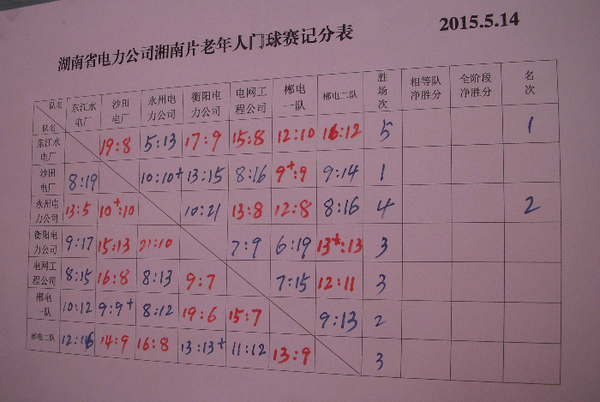 湖南省电力公司湘南片老年人门球赛记分表 2015.5.14
队名 队名 东江水电厂 沙田电厂 永州电力公司 衡阳电力公司 电网工程公司 郴电一队 郴电二队 胜场次 相等队净胜分 全阶段净胜分 名次
东江水电厂 19:8 5:13 17:9 15:8 12:10 16:12 5 1
沙田电厂 8:19 10:10+ 13:15 8:16 9+:9 9:14 1
永州电力公司 13:5 10+:10 10:21 13:8 12:8 8:16 4 2
衡阳电力公司 9:17 15:13 21:10 7:9 6:19 13+:13 3
电网工程公司 8:15 16:8 8:13 9:7 7:15 12:11 3
郴电一队 10:12 9:9+ 8:12 19:6 15:7 9:13 2
郴电二队 12:16 14:9 16:8 13:13+ 11:12 13:9 3